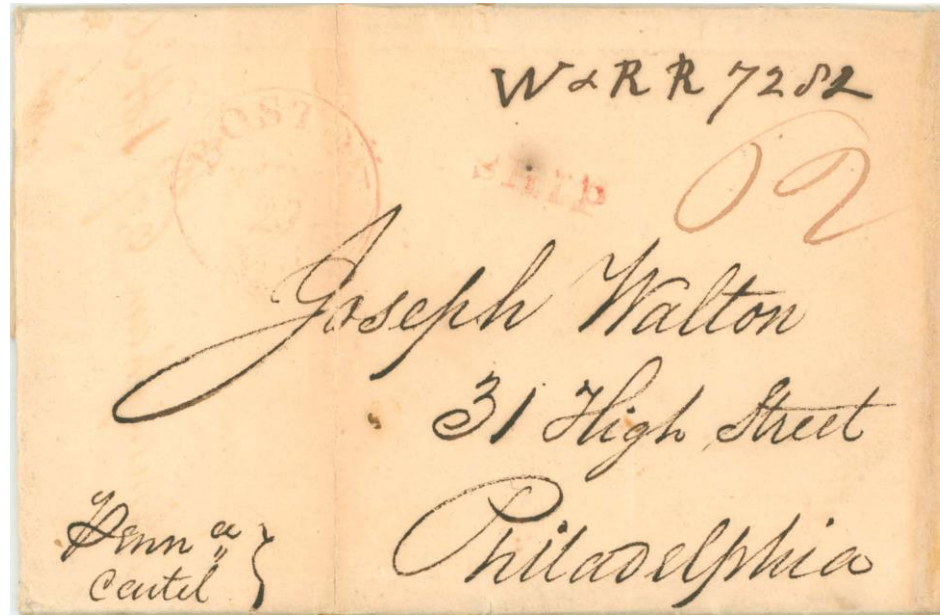 W & R R 7282
BOSTON
SHIP
Joseph Walton
31 High Street
Philadelphia
Penn a